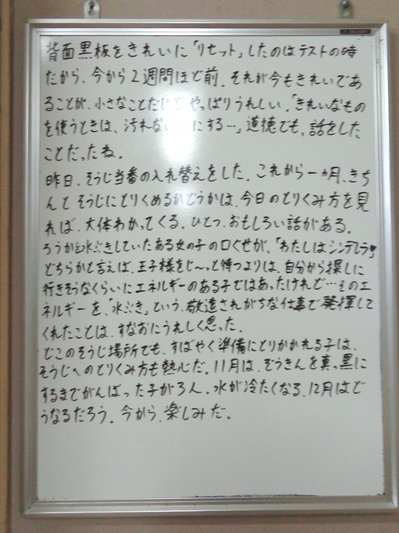 背面黒板をきれいに「リセット」したのはテストの時
だから、今から2週間ほど前。それが今もきれいであ
ることが、小さなことだけどやっぱりうれしい。「きれいなもの
を使うときは、汚れないようにする…。道徳でも、話をした
ことだったね。
昨日、そうじ当番の入れ替えをした。これから一ヵ月、きち
んとそうじにとりくめるかどうかは、今日のとりくみ方を見
れば、大体わかってくる。ひとつ、おもしろい話がある。
ろうかを水ぶきしていたある女の子の口ぐせが、「わたしはシンデレラ」
どちらかと言えば、王子様をじ〜っと待つよりは、自分から探しに
行きそうなくらいにエネルギーのある子ではあったけれど…そのエ
ネルギーを、「水ぶき」という、敬遠されがちな仕事で発揮して
くれたことは、すなおにうれしく思った。
どこのそうじ場所でも、すばやく準備にとりかかれる子は、
そうじへのとりくみ方も熱心だ。11月は、ぞうきんを真っ黒に
するまでがんばった子が3人。水が冷たくなる、12月はど
うなるだろう。今から、楽しみだ。